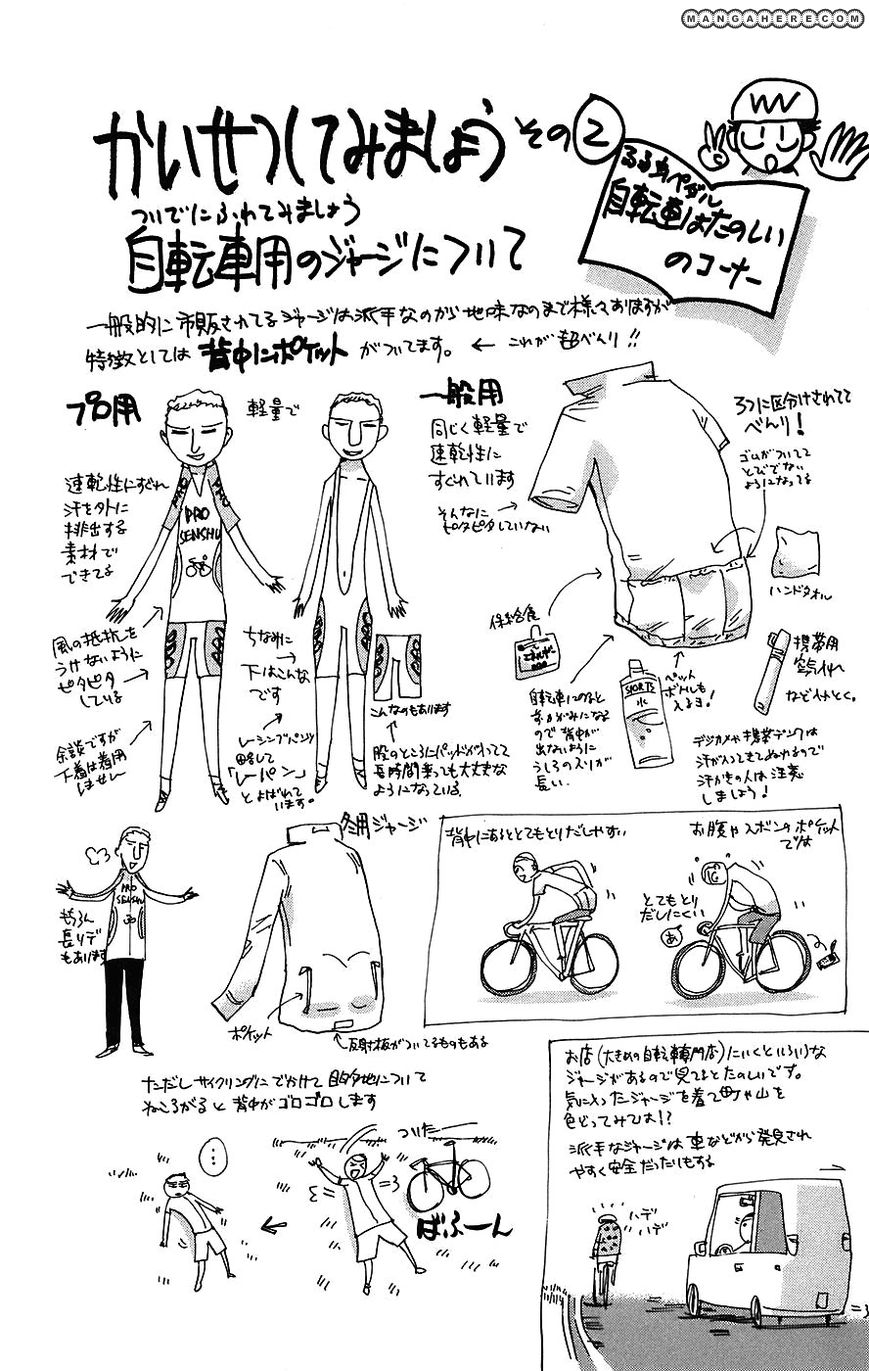 MANGAHERE.COM
かいせつしてみましょう その②
るるあペダル
自転車はたのしい
のコーナー
ついでにふれてみましょう
自転車用のジャージについて
一般的に市販されてるジャージは派手なのから地味なのまで様々ありますが
特徴としては 背中にポケット がついてます。 ← これが超べんり!!
プロ用
軽量で
速乾性にすぐれ
汗を外に
排出する
素材で
できてる
PRO
PRO
PRO
SENSHU
風の抵抗を
うけないように
ピタピタ
している
余談ですが
下着は着用
しません
ちなみに
下はこんな
です
レーシングパンツ
略して
「レーパン」
とよばれて
います。
こんなのもあります
股のところにパッドが入ってて
長時間乗っても大丈夫な
ようになっている。
一般用
同じく軽量で
速乾性に
すぐれています
そんなに
ピタピタしていない
3つに区分けされてて
べんり!
ゴムがついてて
とびでない
ようになってる
ハンドタオル
補給食
SPORTS
水
ペット
ボトルも
入るヨ!
携帯用
空気入れ
などイロイロと。
自転車にのると
前かがみになる
ので背中が
出ないように
うしろのスソが
長い。
デジカメや携帯デンワは
汗が入ってきてぬれるので
汗かきの人は注意
しましょう!
PRO
SENSHU
もちろん
長ソデ
もあります
冬用ジャージ
ポケット
反射板がついてるものもある
背中にあるととてもとりだしやすい
お腹やズボンのポケット
では
とてもとり
だしにくい
あ
ただしサイクリングにでかけて目的地について
ねころがると背中がゴロゴロします
…
ついたー
ばふーん
お店(大きめの自転車専門店)にいくといろいろな
ジャージがあるので見てるとたのしいです。
気に入ったジャージを着て町や山を
色どってみては!?
派手なジャージは車などから発見され
やすく安全だったりもする
ハデ
ハデ